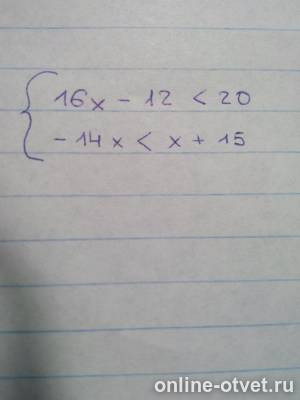 16x - 12 < 20
- 14x < x + 15
online-otvet.ru